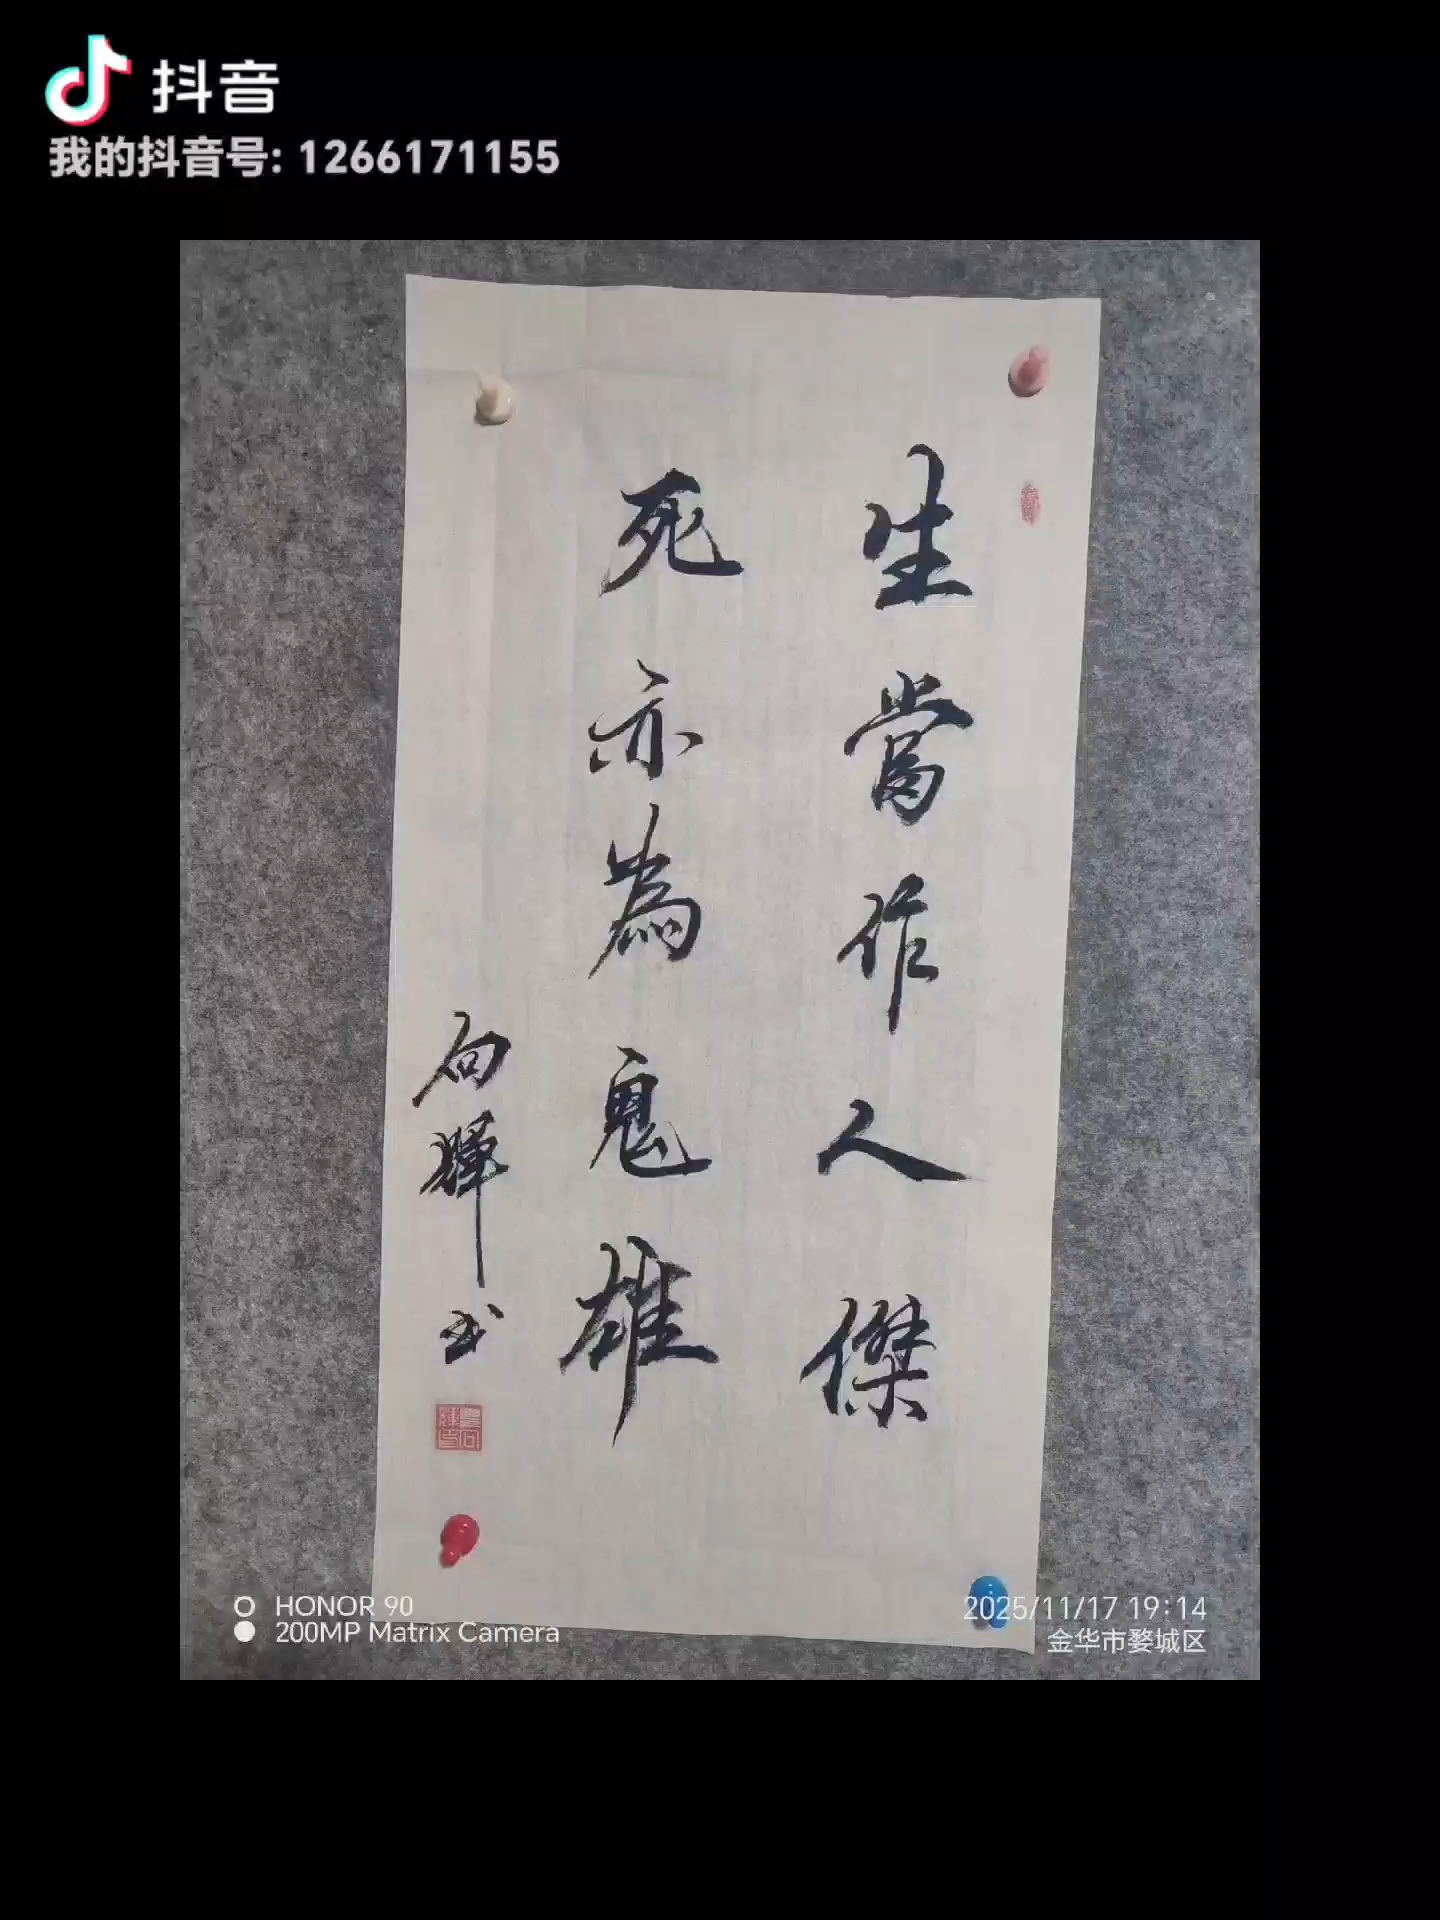 抖音
我的抖音号: 1266171155
生當作人傑
死亦為鬼雄
向輝书
HONOR 90
200MP Matrix Camera
2025/11/17 19:14
金华市婺城区